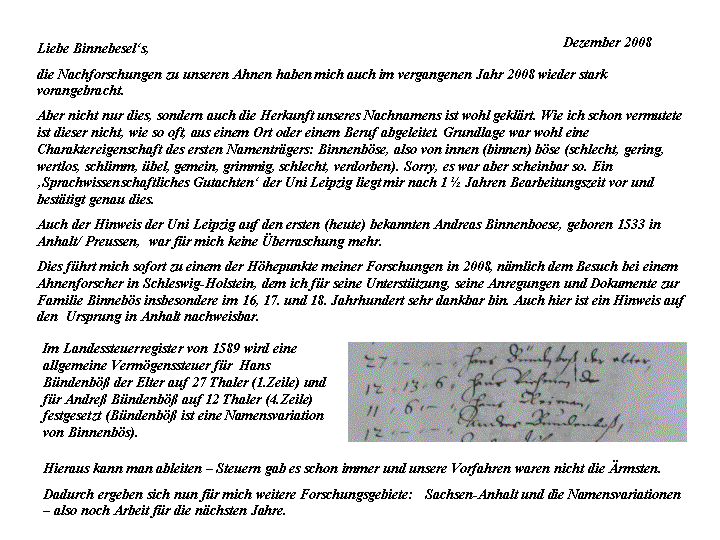 Dezember 2008
Liebe Binnebesel‘s,
die Nachforschungen zu unseren Ahnen haben mich auch im vergangenen Jahr 2008 wieder stark
vorangebracht.
Aber nicht nur dies, sondern auch die Herkunft unseres Nachnamens ist wohl geklärt. Wie ich schon vermutete
ist dieser nicht, wie so oft, aus einem Ort oder einem Beruf abgeleitet. Grundlage war wohl eine
Charaktereigenschaft des ersten Namenträgers: Binnenböse, also von innen (binnen) böse (schlecht, gering,
wertlos, schlimm, übel, gemein, grimmig, schlecht, verdorben). Sorry, es war aber scheinbar so. Ein
‚Sprachwissenschaftliches Gutachten‘ der Uni Leipzig liegt mir nach 1 ½ Jahren Bearbeitungszeit vor und
bestätigt genau dies.
Auch der Hinweis der Uni Leipzig auf den ersten (heute) bekannten Andreas Binnenboese, geboren 1533 in
Anhalt/ Preussen, war für mich keine Überraschung mehr.
Dies führt mich sofort zu einem der Höhepunkte meiner Forschungen in 2008, nämlich dem Besuch bei einem
Ahnenforscher in Schleswig-Holstein, dem ich für seine Unterstützung, seine Anregungen und Dokumente zur
Familie Binnebös insbesondere im 16, 17. und 18. Jahrhundert sehr dankbar bin. Auch hier ist ein Hinweis auf
den Ursprung in Anhalt nachweisbar.
Im Landessteuerregister von 1589 wird eine
allgemeine Vermögenssteuer für Hans
Bündenböß der Elter auf 27 Thaler (1.Zeile) und
für Andreß Bündenböß auf 12 Thaler (4.Zeile)
festgesetzt (Bündenböß ist eine Namensvariation
von Binnenbös).
27
12 13 6
11 6
12
Hieraus kann man ableiten – Steuern gab es schon immer und unsere Vorfahren waren nicht die Ärmsten.
Dadurch ergeben sich nun für mich weitere Forschungsgebiete: Sachsen-Anhalt und die Namensvariationen
– also noch Arbeit für die nächsten Jahre.